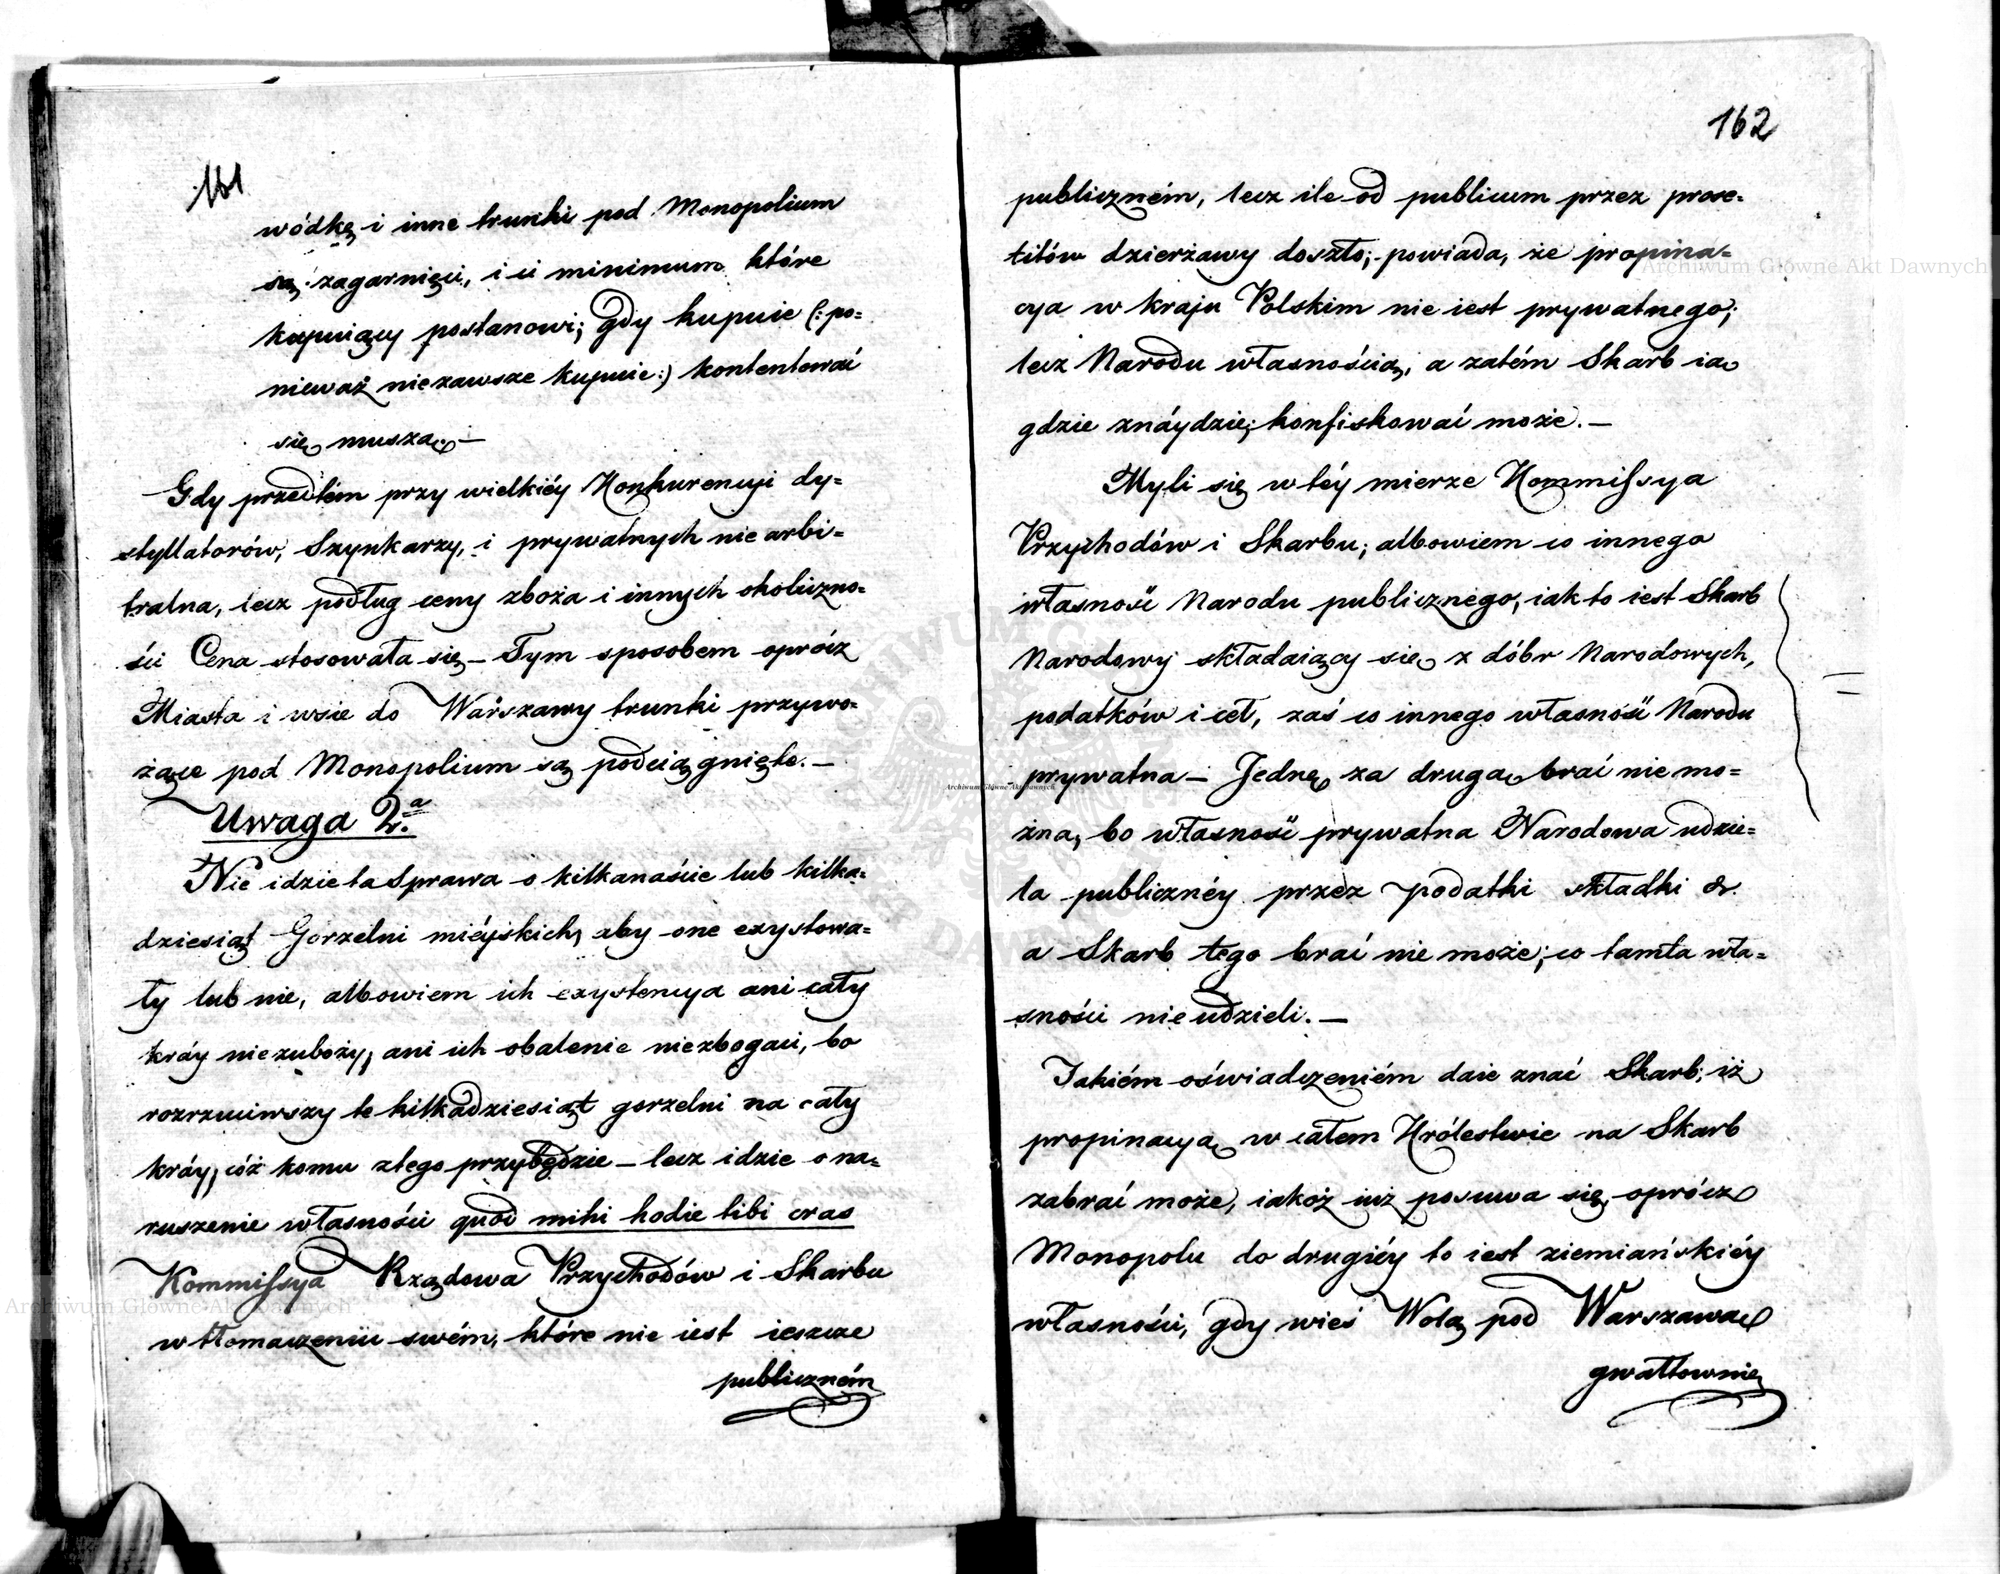 161
wódkę i inne trunki pod Monopolium
są zagarnięci, i ci minimum które
kupuiący postanowi; gdy kupuie (: po=
nieważ niezawsze kupuie :) kontentować
się muszą. —
Gdy przedtém przy wielkiéy Konkurencyi dy=
styllatorów, Szynkarzy, i prywatnych nie arbi=
tralna, lecz podług ceny zboża i innych okoliczno=
ści Cena stosowała się — Tym sposobem oprócz
Miasta i wsie do Warszawy trunki przywo=
żące pod Monopolium są podciągnięte. —
Uwaga 2.a
Nie idzie ta Sprawa o kilkanaście lub kilka=
dziesiąt Gorzelni miéyskich, aby one exystowa=
ły lub nie, albowiem ich exystencya ani cały
kráy niezuboży, ani ich obalenie niezbogaci, bo
rozrzuciwszy te kilkadziesiąt gorzelni na cały
kráy, cóż komu złego przybędzie — lecz idzie o na=
ruszenie własności quod mihi hodie tibi cras
Kommissya Rządowa Przychodów i Skarbu
w tłomaczeniu swém, które nie iest ieszcze
publiczném
162
publiczném, lecz ile od publicum przez prose=
titów dzierżawy doszło; powiada, że propina=
cya w kraju Polskim nie iest prywatnego;
lecz Narodu własnością, a zatém Skarb ią
gdzie znáydzie; konfiskować może. —
Myli się w téy mierze Kommissya
Przychodów i Skarbu; albowiem co innego
własność Narodu publicznego, iak to iest Skarb
Narodowy składaiący się z dóbr Narodowych,
podatków i ceł, zaś co innego własność Narodu
prywatna — Jednę za drugą brać nie mo=
żna, bo własność prywatna Narodowa udzie=
la publicznéy przez podatki składki &.
a Skarb tego brać nie może; co tamta wła=
sności nie udzieli. —
Jakiém oświadczeniém daie znać Skarb; iż
propinacyą w całem Królestwie na Skarb
zabrać może, iakoż iuż posuwa się oprócz
Monopolu do drugiéy to iest ziemiańskiéy
własności, gdy wieś Wolą pod Warszawą
gwałtownie